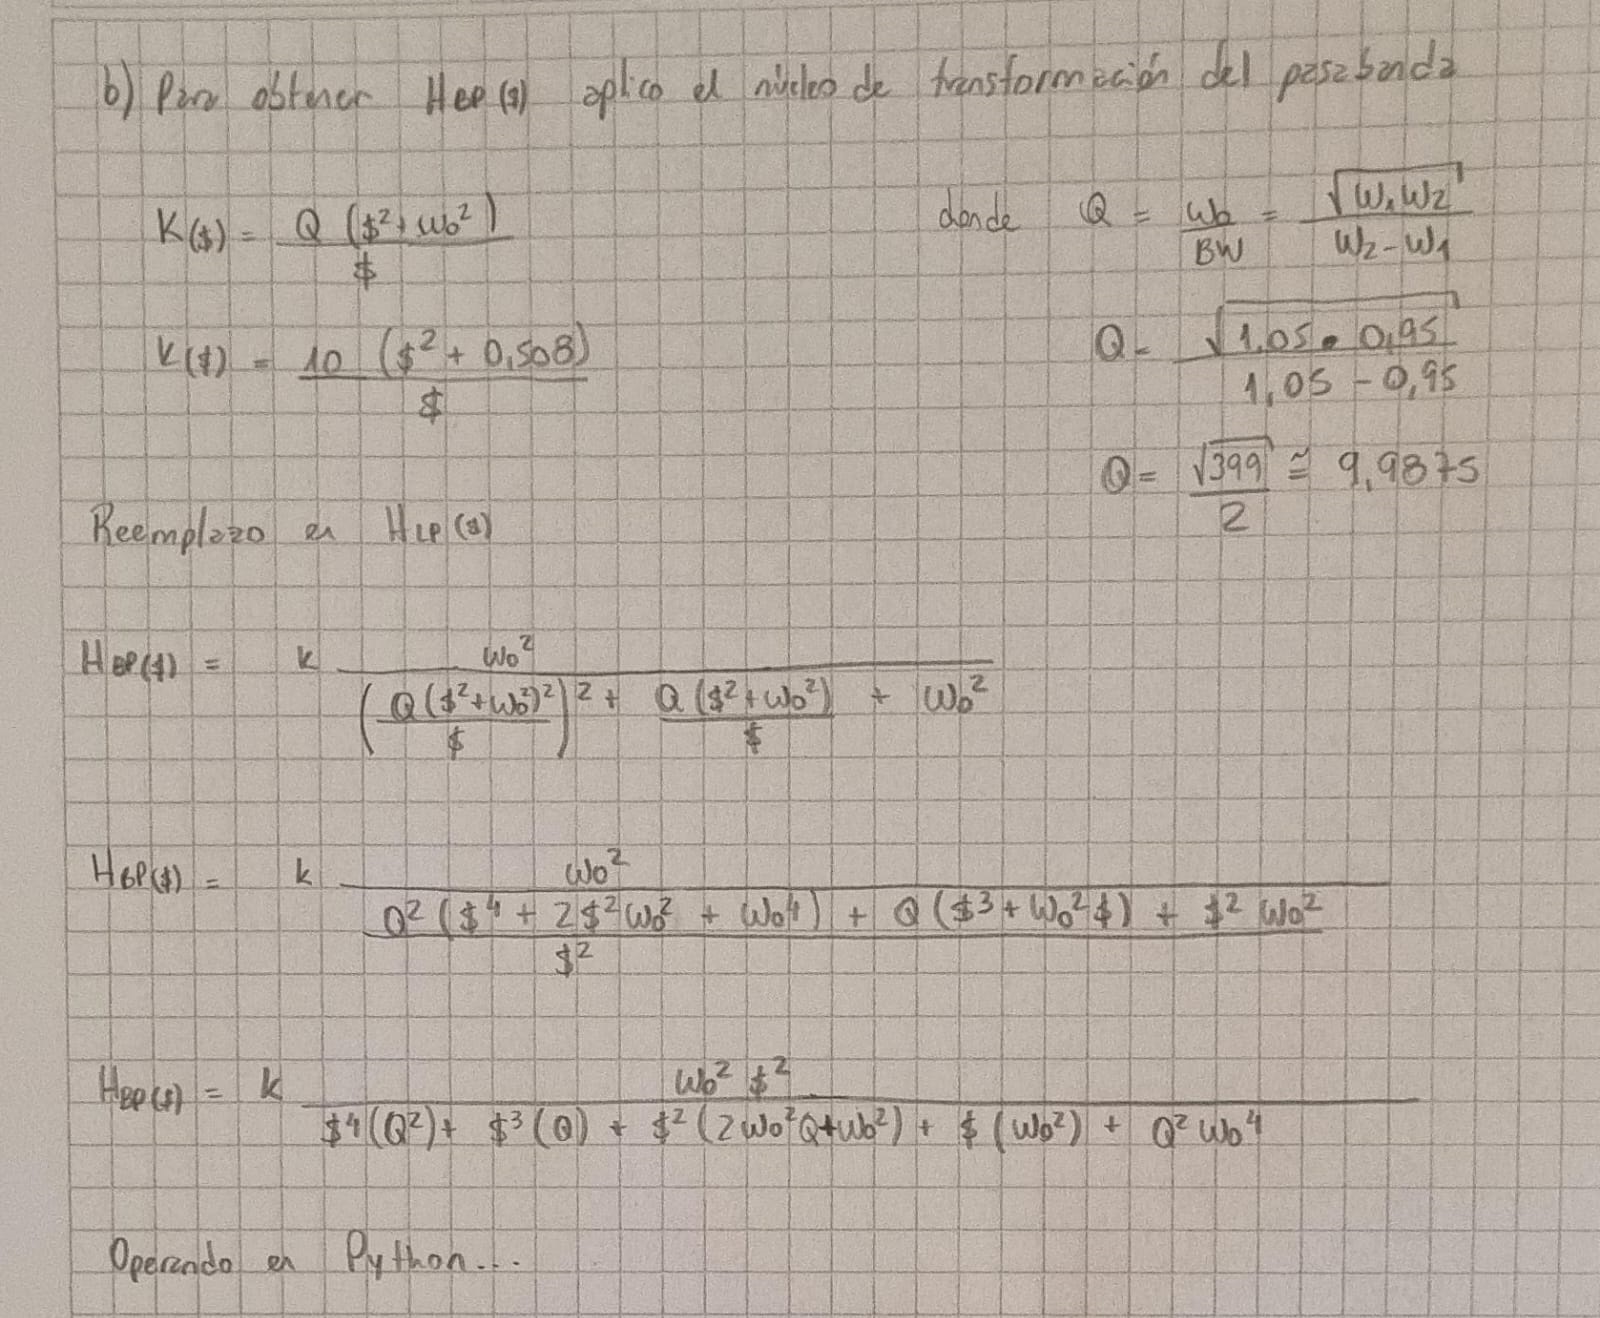 b) Para obtener HBP($) aplico el núcleo de transformación del pasabanda
K($) = Q ($² + ω₀²) / $
donde Q = ω₀ / BW = √(ω₁ω₂) / (ω₂ - ω₁)
K($) = 10 ($² + 0,508) / $
Q = √(1,05 . 0,95) / (1,05 - 0,95)
Q = √399 / 2 ≅ 9,9875
Reemplazo en HLP($)
HBP($) = k ω₀² / ((Q ($² + ω₀²)² / $)² + Q ($² + ω₀²) / $ + ω₀²)
HBP($) = k ω₀² / ((Q² ($⁴ + 2$²ω₀² + ω₀⁴) + Q ($³ + ω₀²$) + $² ω₀²) / $²)
HBP($) = k ω₀² $² / ($⁴(Q²) + $³(Q) + $²(2ω₀²Q + ω₀²) + $(ω₀²) + Q² ω₀⁴)
Operando en Python...